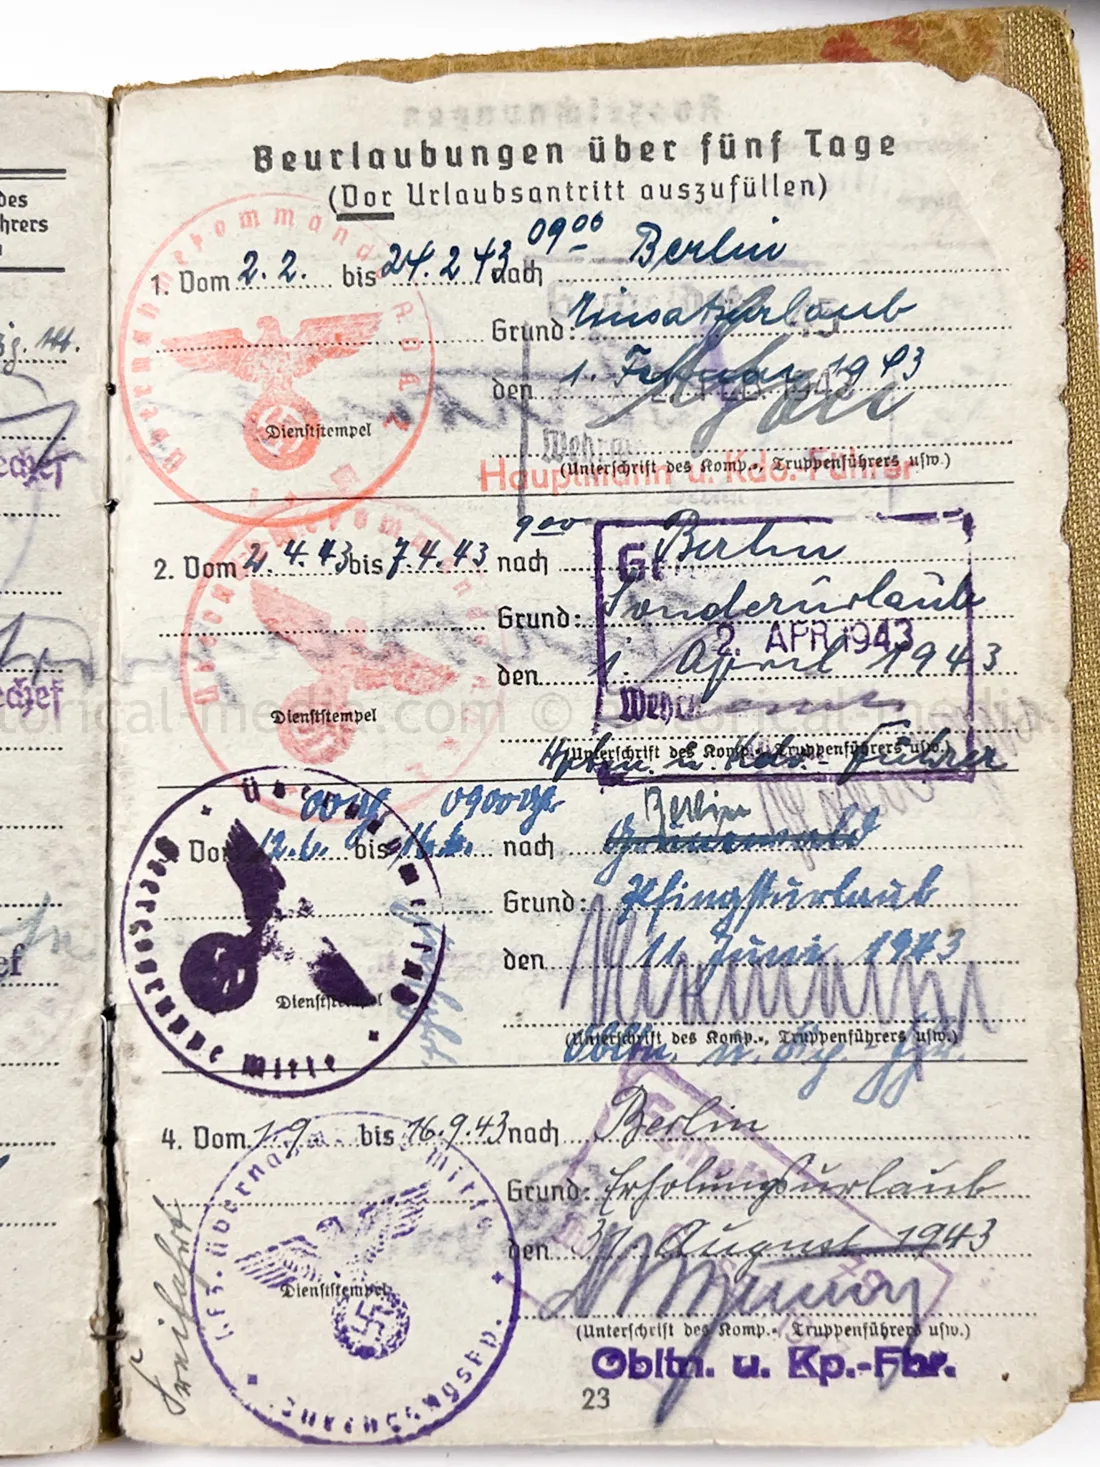 des
hrers
Beurlaubungen über fünf Tage
(Vor Urlaubsantritt auszufüllen)
09 00
1. Vom 2.2. bis 24.2.43 nach Berlin
Grund: Einsatzurlaub
den 1. Februar 1943
FEB 1943
Dienststempel
(Unterschrift des Komp.-, Truppenführers usw.)
Hauptmann u. Kdo.-Führer
9 00
2. Vom 2.4.43 bis 7.4.43 nach Berlin
Grund: Sonderurlaub
2. APR 1943
den 1. April 1943
Dienststempel
(Unterschrift des Komp.-, Truppenführers usw.)
Hptm. u. Kdo.-Führer
historical-media.com © historical-media
0900 Berlin
Vom 12.6. bis 16.6. nach
Grund: Pfingsturlaub
den 11. Juni 1943
Dienststempel
(Unterschrift des Komp.-, Truppenführers usw.)
Obltn. u. Kp.-Fhr.
Heeresgruppe Mitte
4. Vom 1.9. bis 16.9.43 nach Berlin
Grund: Erholungsurlaub
den 31. August 1943
Dienststempel
(Unterschrift des Komp.-, Truppenführers usw.)
Obltn. u. Kp.-Fhr.
23
Freifahrt